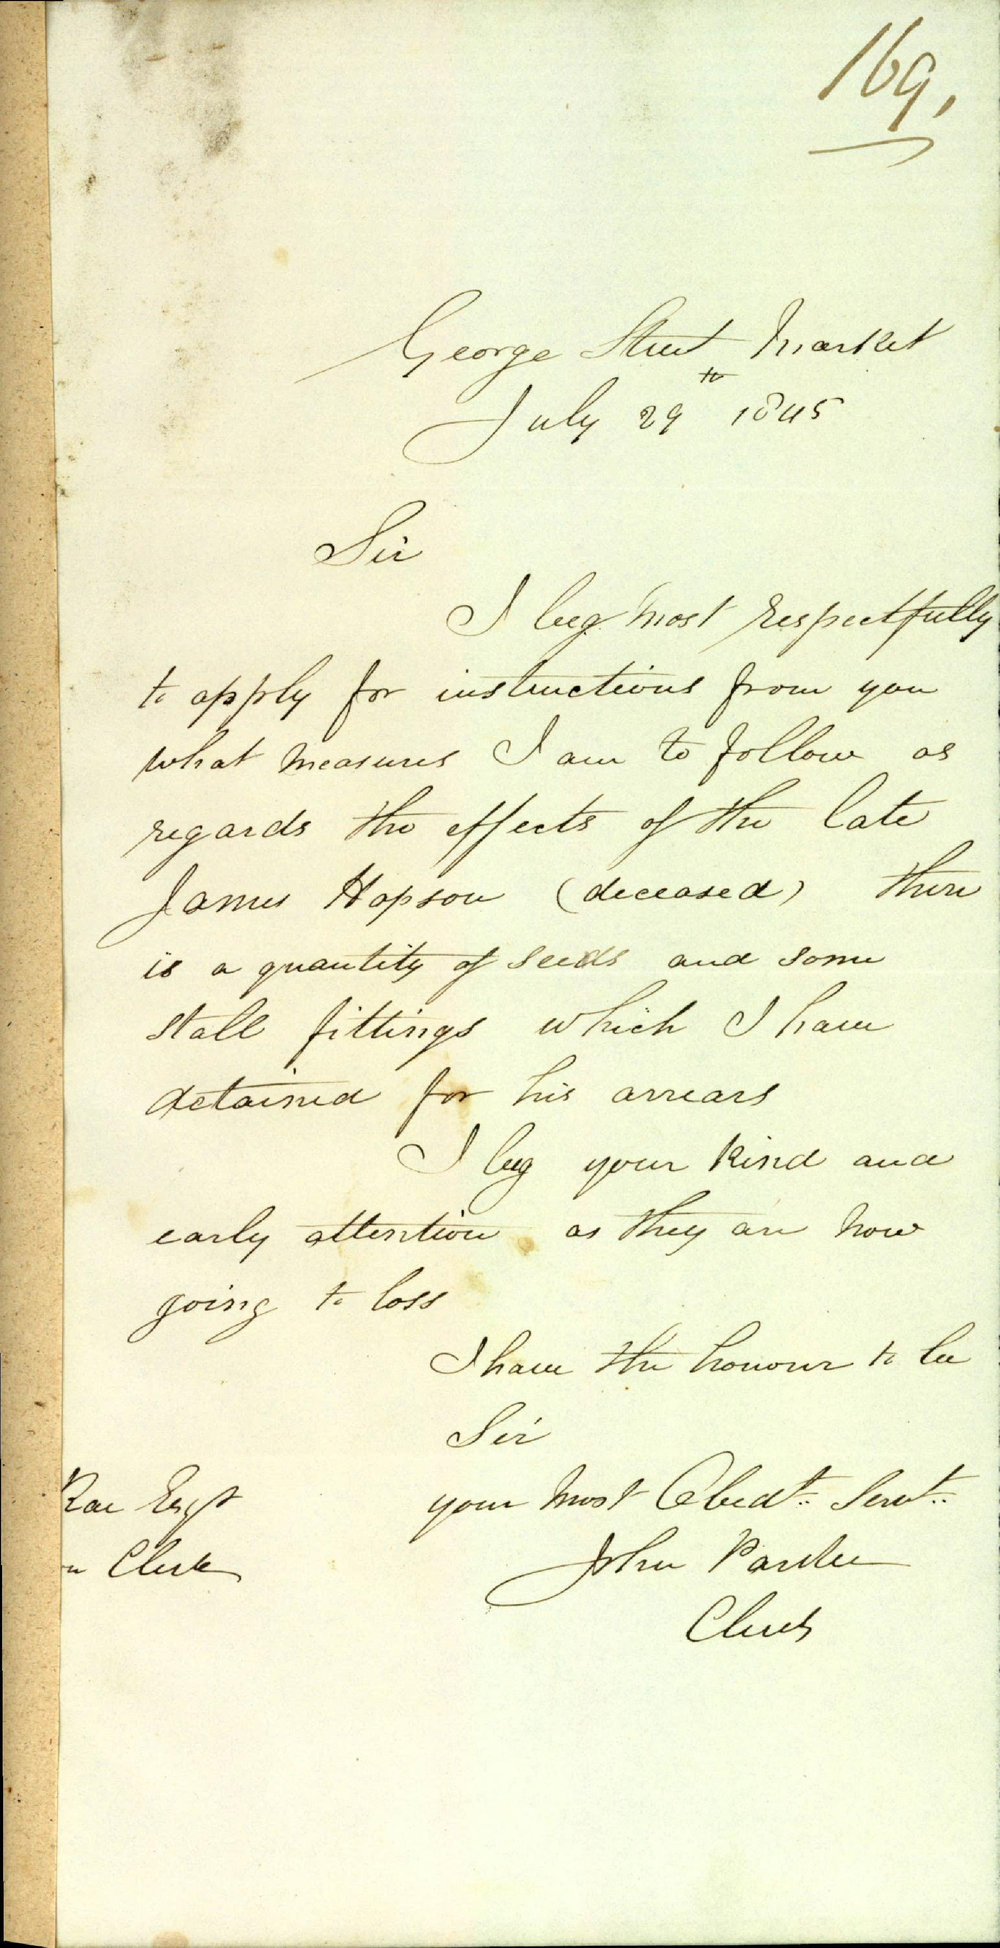 169,
George Street Market
July 29th 1845
Sir
I beg most respectfully
to apply for instructions from you
what measures I am to follow as
regards the effects of the late
James Hopson (deceased) there
is a quantity of seeds and some
stall fittings which I have
detained for his arrears
I beg your kind and
early attention as they are now
going to loss
I have the honour to be
Sir
your most Obedt. Servt.
Rae Esqr
Clerk
John Parker
Clerk